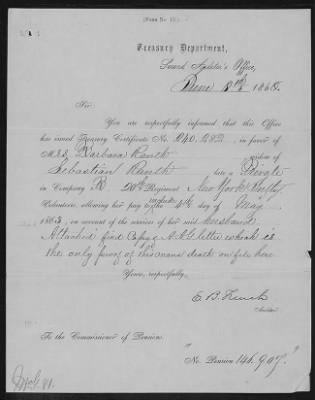 (Form No. 10.)
Treasury Department,
Second Auditor's Office,
June 8th, 1868.
Sir:
You are respectfully informed that this Office
has issued Treasury Certificate No. 240.282, in favor of
Mrs Barbara Rauch
widow of
Sebastian Rauch late a Private
in Company K. 20th Regiment New York Infty
Volunteers, allowing her pay to the 6th day of May
1863, on account of the services of her said husband.
Attached find Copy of A.G. letter which is
the only proof of this mans death on file here
Yours, respectfully,
E. B. French
Auditor.
To the Commissioner of Pensions.
No. Pension 146.907.